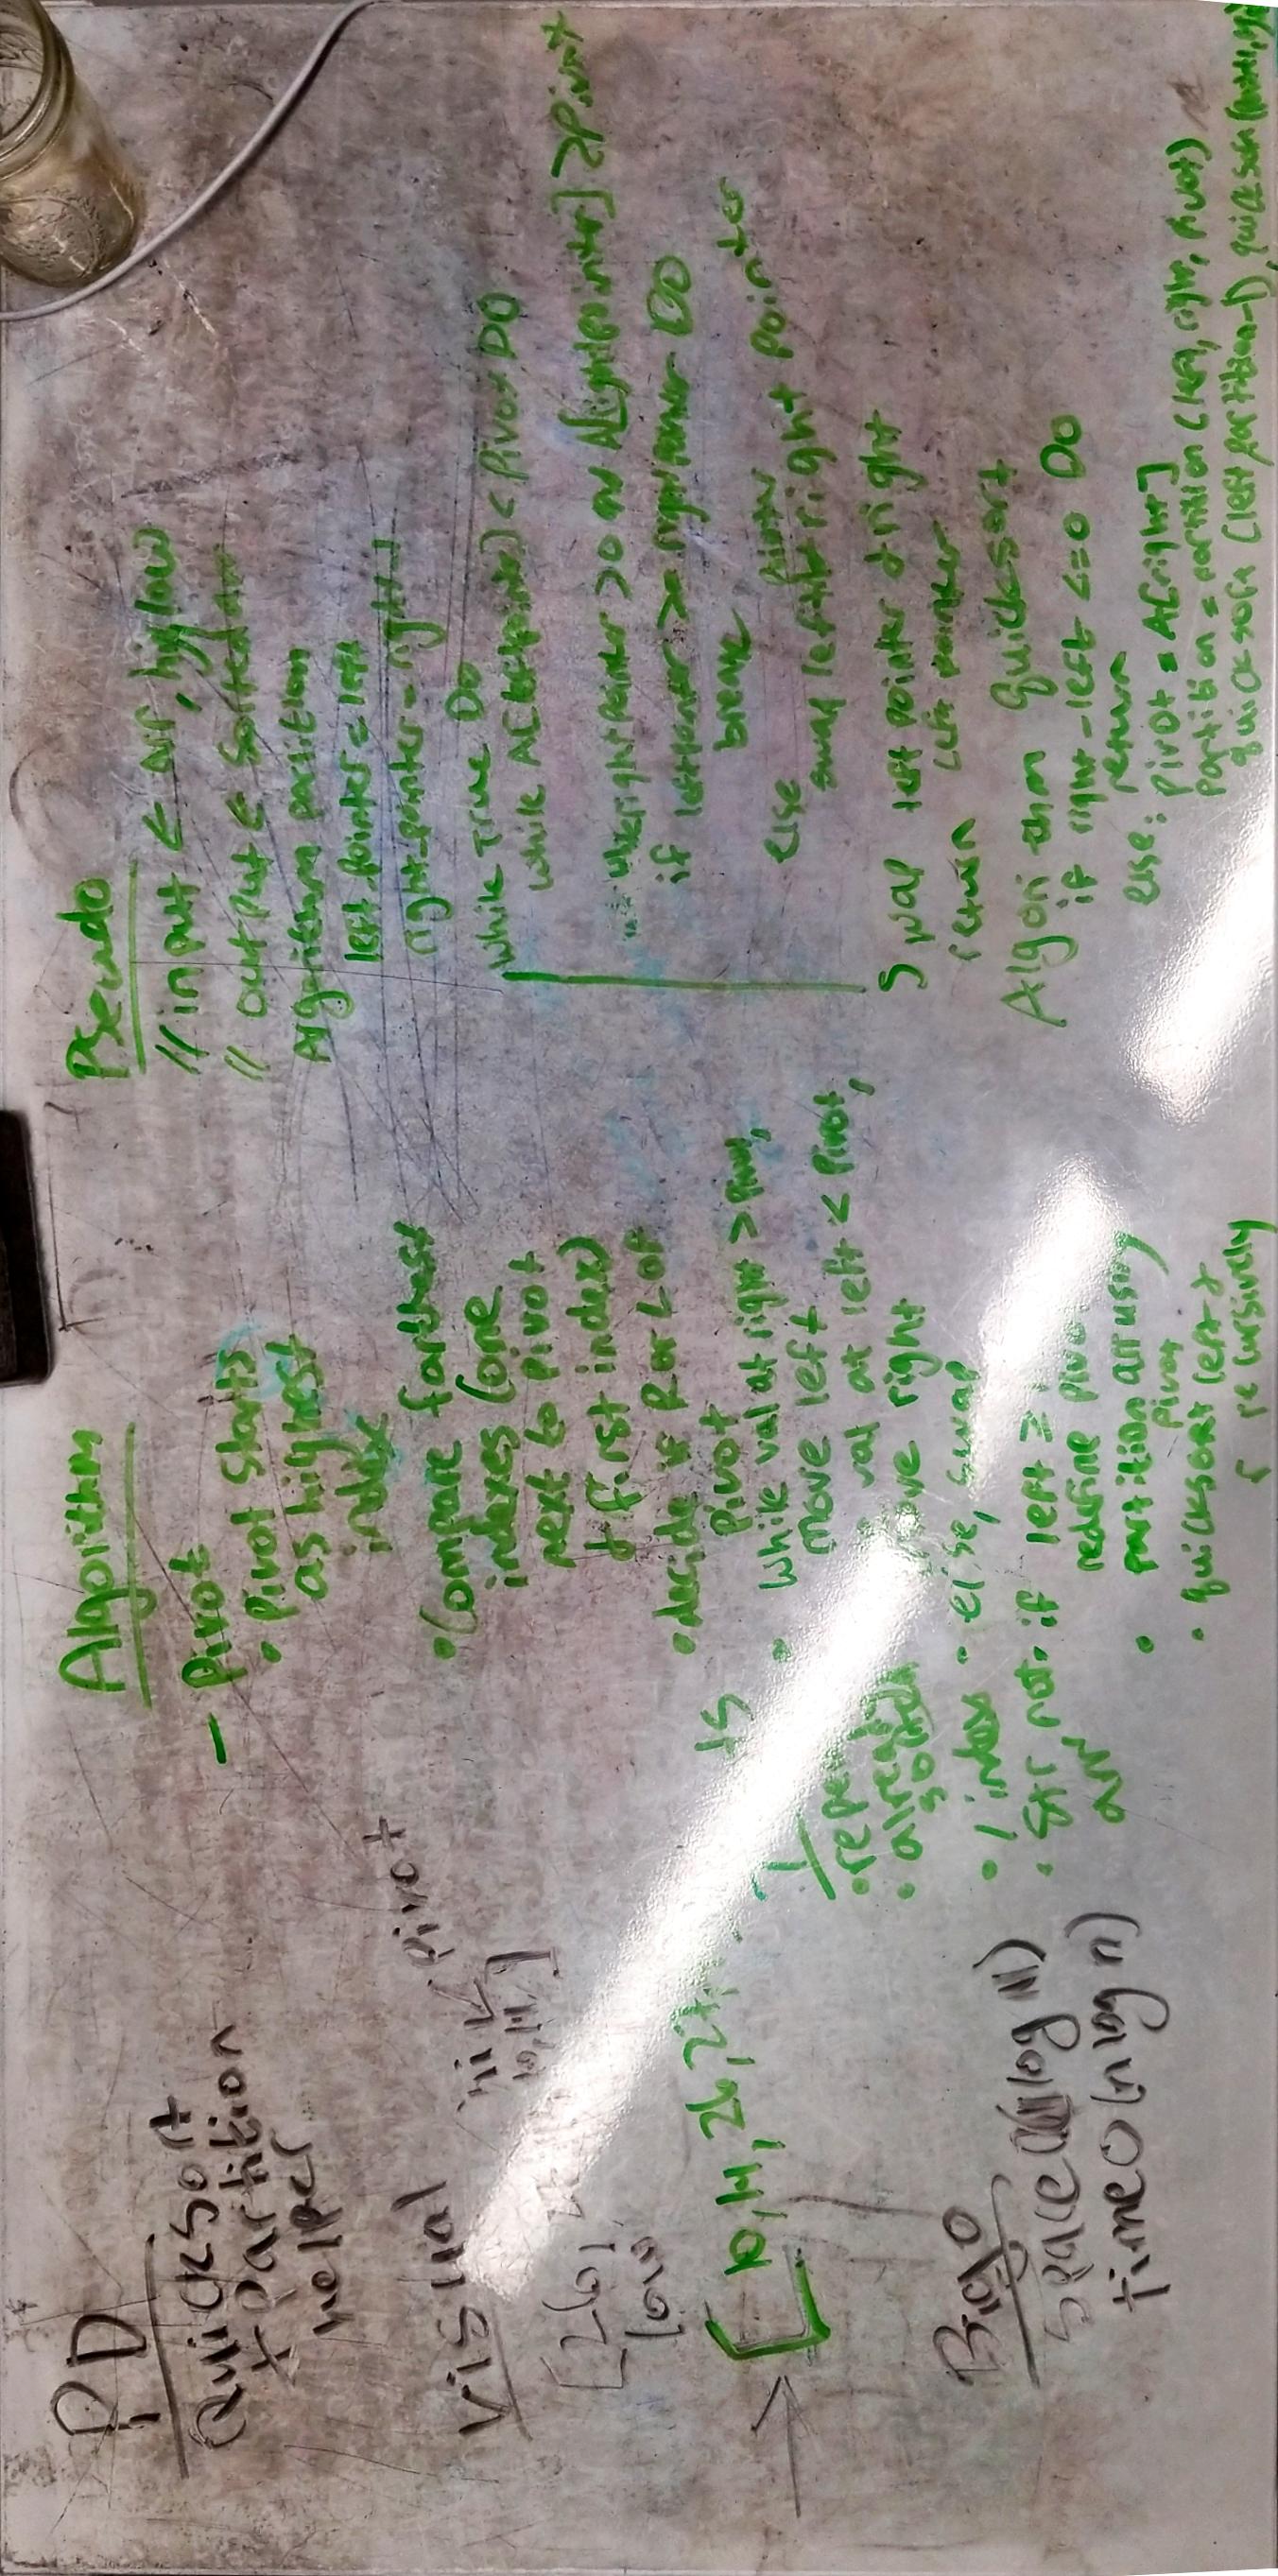 PD
Quicksort
+ partition
helper
Visual
pivot
[26,
10, 14]
low
[10, 14, 26,
BigO
Space (log n)
time O(n log n)
ts
• already
• 1 index
• str not
arr
Algorithm
- Pivot
• pivot starts
as highest
index
• Compare farthest
indexes (one
next to pivot
& first index)
• decide is R or L of
pivot
• while val at right > pivot,
move left
val at left < pivot,
move right
• else, swap
• if left ≥
redefine pivot
• partition arr using
pivot
• quicksort left &
r recursively
Pseudo
// input ← arr, high, low
// output ← sorted arr
Algorithm partition
left_pointer = left
right_pointer = right-1
while True DO
while A[leftpointer] < Pivot DO
while rightpointer > 0 and A[rightpointer] > Pivot
if leftpointer >= rightpointer DO
break
else
swap left & right pointer
Swap left pointer & right
return left pointer
Algorithm quicksort
if right-left <= 0 DO
return
else: pivot = A[right]
partition = partition (left, right, pivot)
quicksort (left, partition-1), quicksort